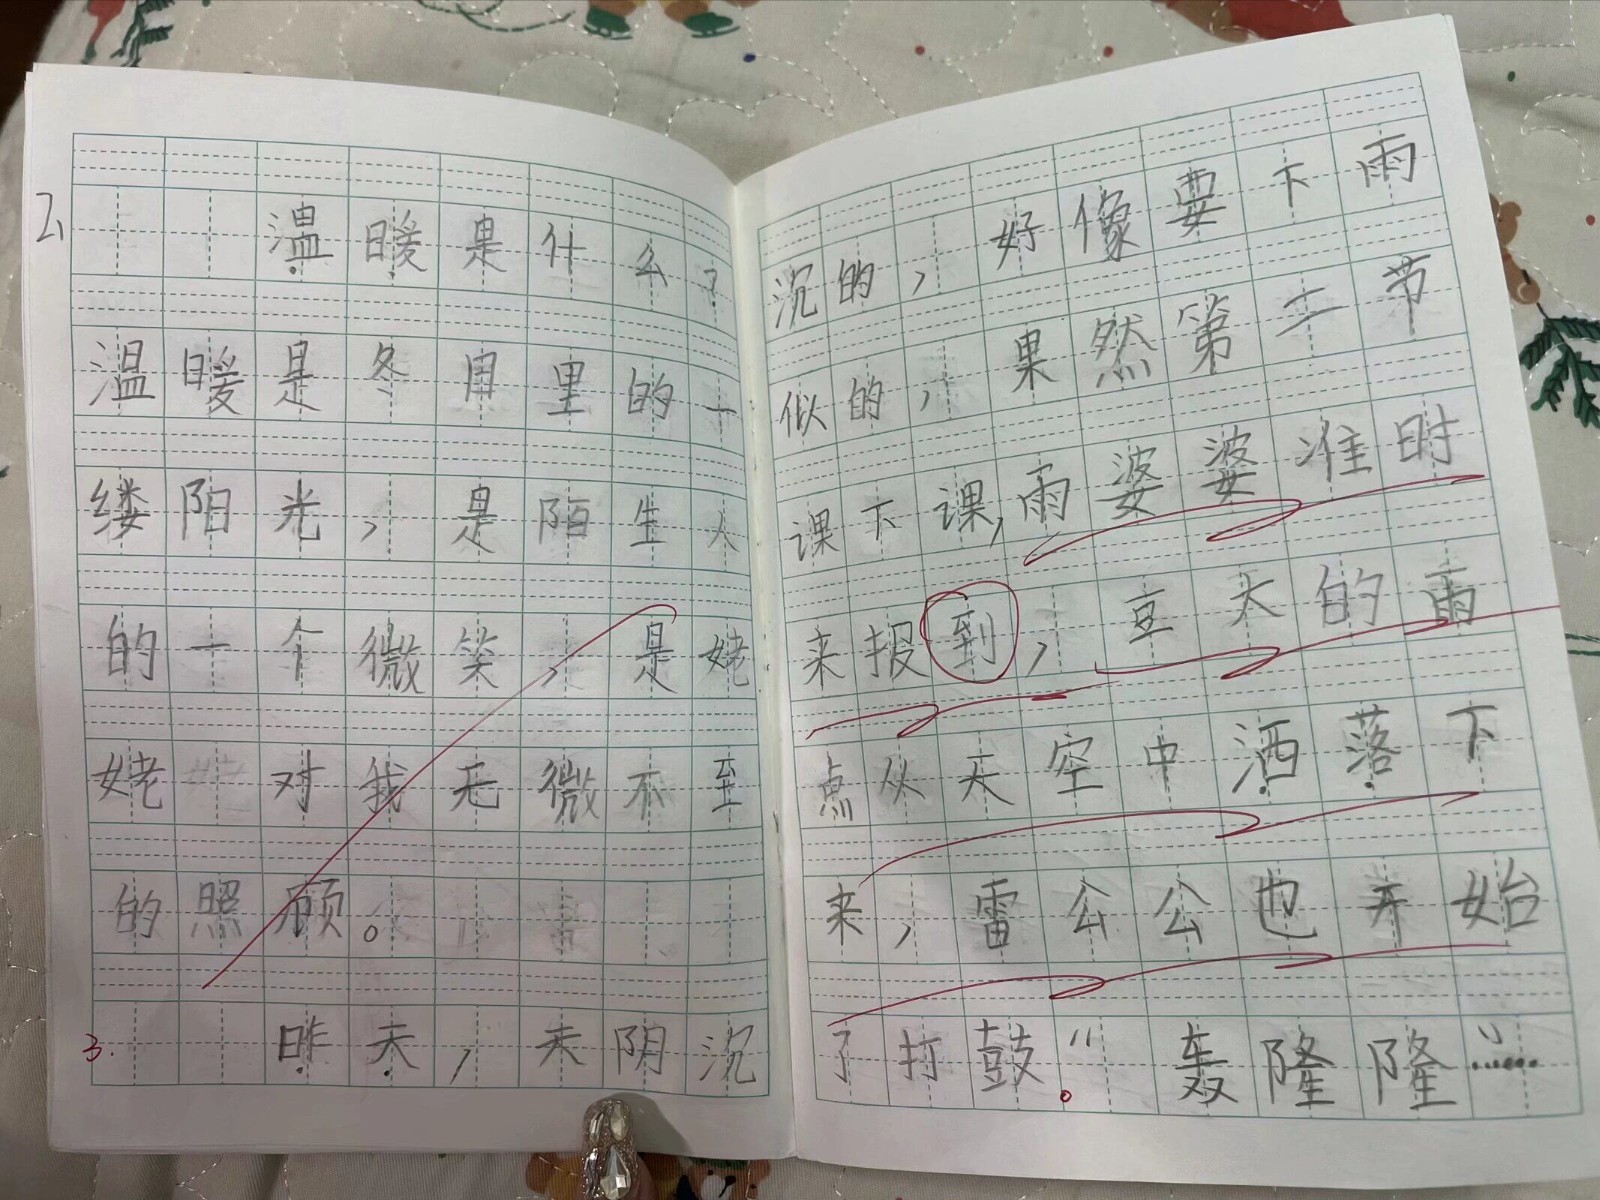 2、温暖是什么?
温暖是冬日里的一
缕阳光，是陌生人
的一个微笑，是姥
姥对我无微不至
的照顾。
3.昨天，天阴沉
沉的，好像要下雨
似的，果然第二节
课下课，雨婆婆准时
来报到，豆大的雨
点从天空中洒落下
来，雷公公也开始
了打鼓。“轰隆隆……”